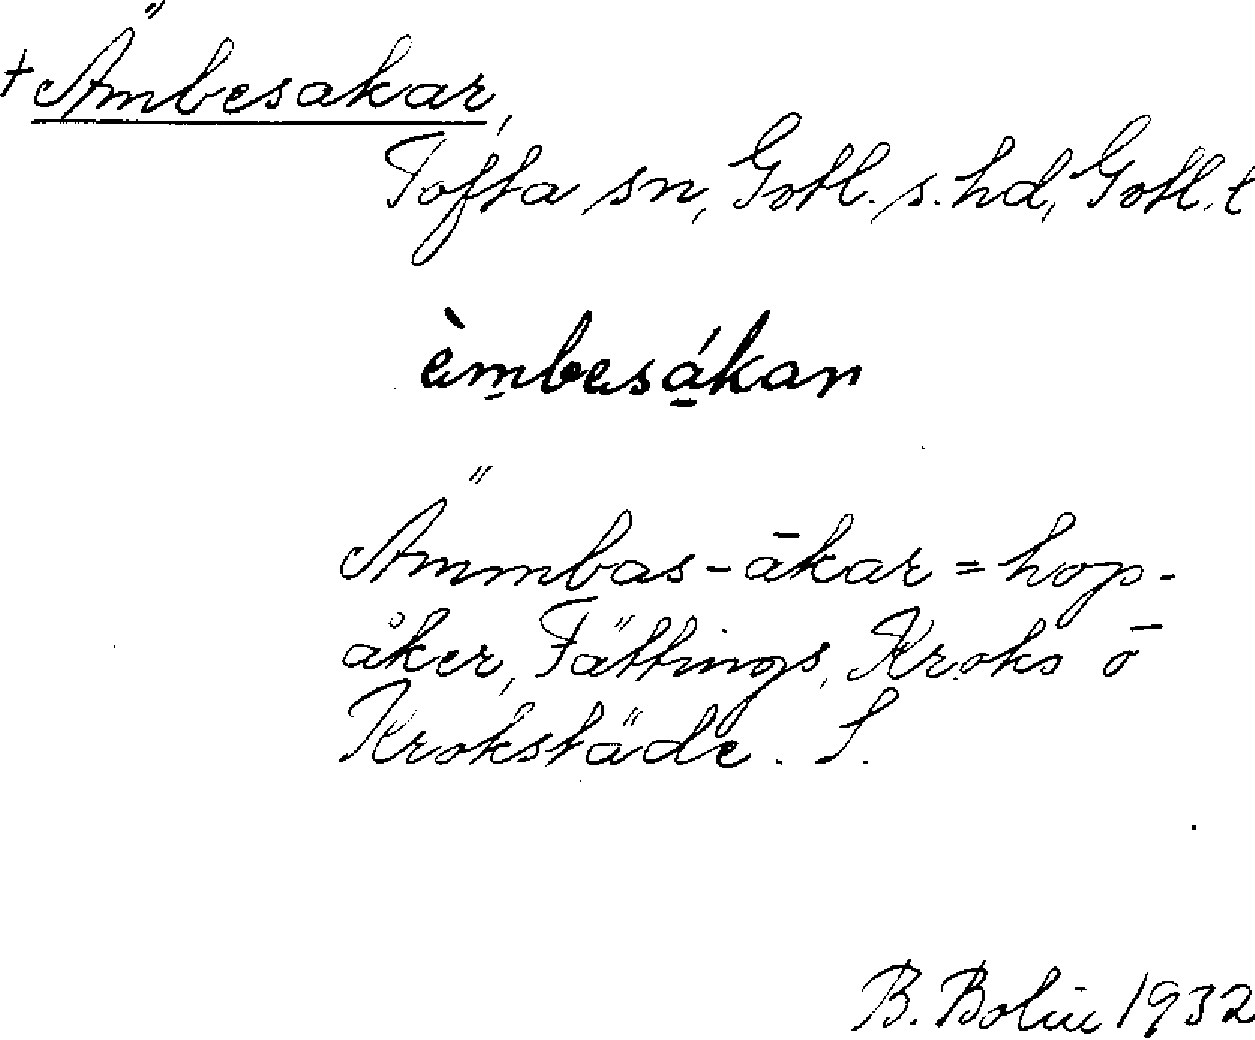 + Ämbesakar,
Tofta sn, Gotl. s. hd, Gotl. l
èmbesákar
Ämmbas-ākar = hop-
åker, Tättings, Kroks ō
Krokstäde. S.
B. Bolin 1932